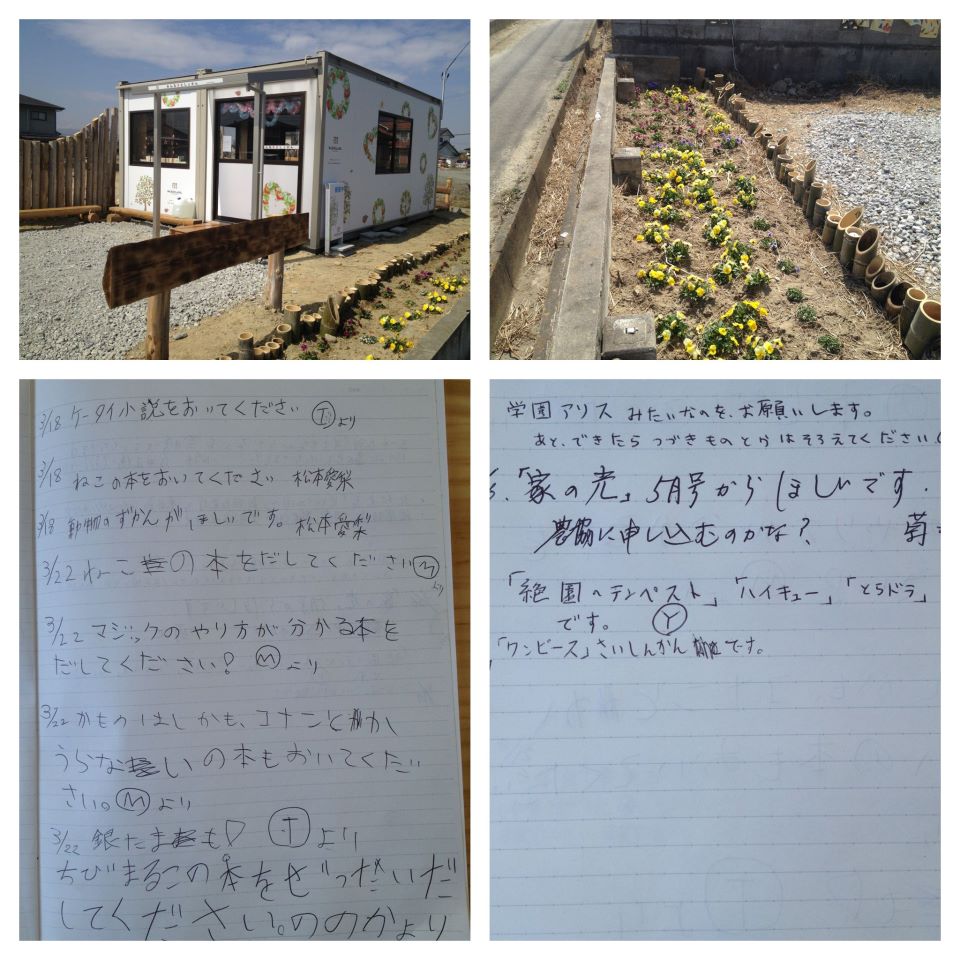 3/18 ケータイ小説をおいてください より
3/18 ねこの本をおいてくださぃ 松本愛梨
3/18 動物のずかんがほしいです。松本愛梨
3/22 ねこの本をだしてください Ⓜ
より
3/22 マジックのやり方が分かる本を
だしてください! Ⓜ より
3/22 かものはしかも、コナンとか
うらないの本もおいてくだ
さい。Ⓜ より
3/22 銀たまも! より
ちびまるこの本をぜっだいだ
してください。ののかより
学園アリス みたいなのを、お願いします。
あと、できたら つづきものとかはそろえてください
「家の光」5月号からほしいです.
農協に申し込むのかな? 菊
「絶園のテンペスト」「ハイキュー」「とらドラ」
です。 Ⓨ
「ワンピース」さいしんかん です。